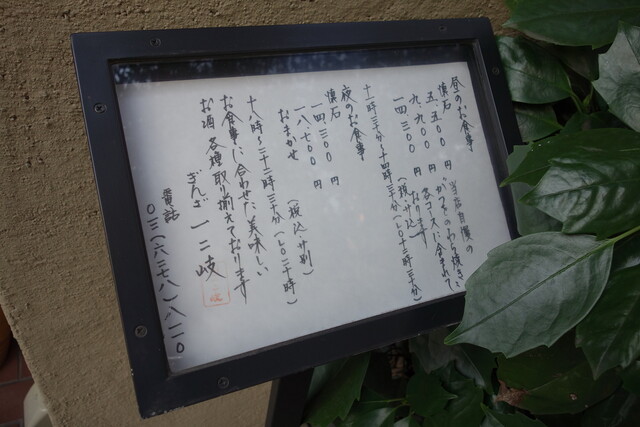 昼のお食事
懐石 五、五〇〇円
九、九〇〇円
一四、三〇〇円
当店自慢の
かつをのわら焼きが
各コースに含まれて
おります
(税込)
十一時三十分〜十四時三十分(LO十三時)
夜のお食事
懐石
一四、三〇〇円
一八、七〇〇円
おまかせ
(税込・サ別)
十八時〜二十二時三十分(LO二十時)
お食事に合わせた美味しい
お酒各種取り揃えております
ぎんざ一二岐
電話
〇三(六二七八)八一一〇